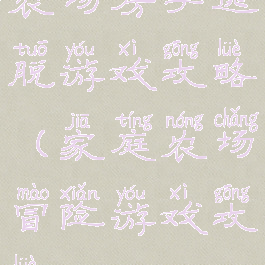 tuō yóu xì gōng lüè
脱游戏攻略
jiā tíng nóng chǎng
（家庭农场
mào xiǎn yóu xì gōng
冒险游戏攻
lüè